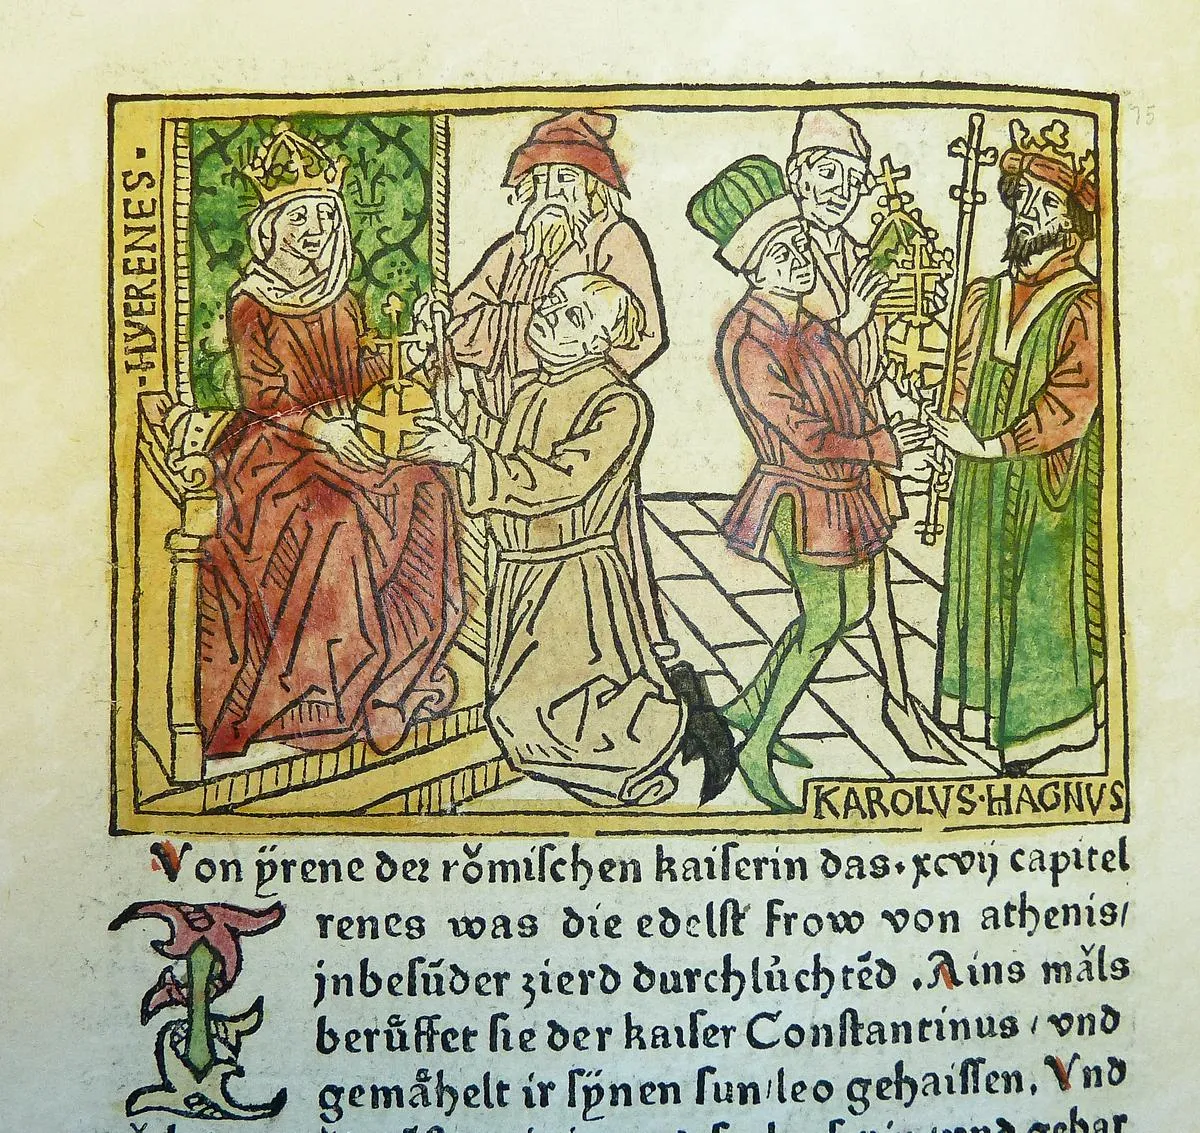 ·HYERENES·
KAROLVS·HAGNVS
Von ÿrene der rŏmischen kaiserin das·xcvij capitel
Irenes was die edelst frow von athenis/
jnbesūder zierd durchlu̇chtēd .Ains mǎls
berůffet sie der kaiser Constantinus / vnd
gemåhelt ir sÿnen sun/leo gehaissen. Vnd
75